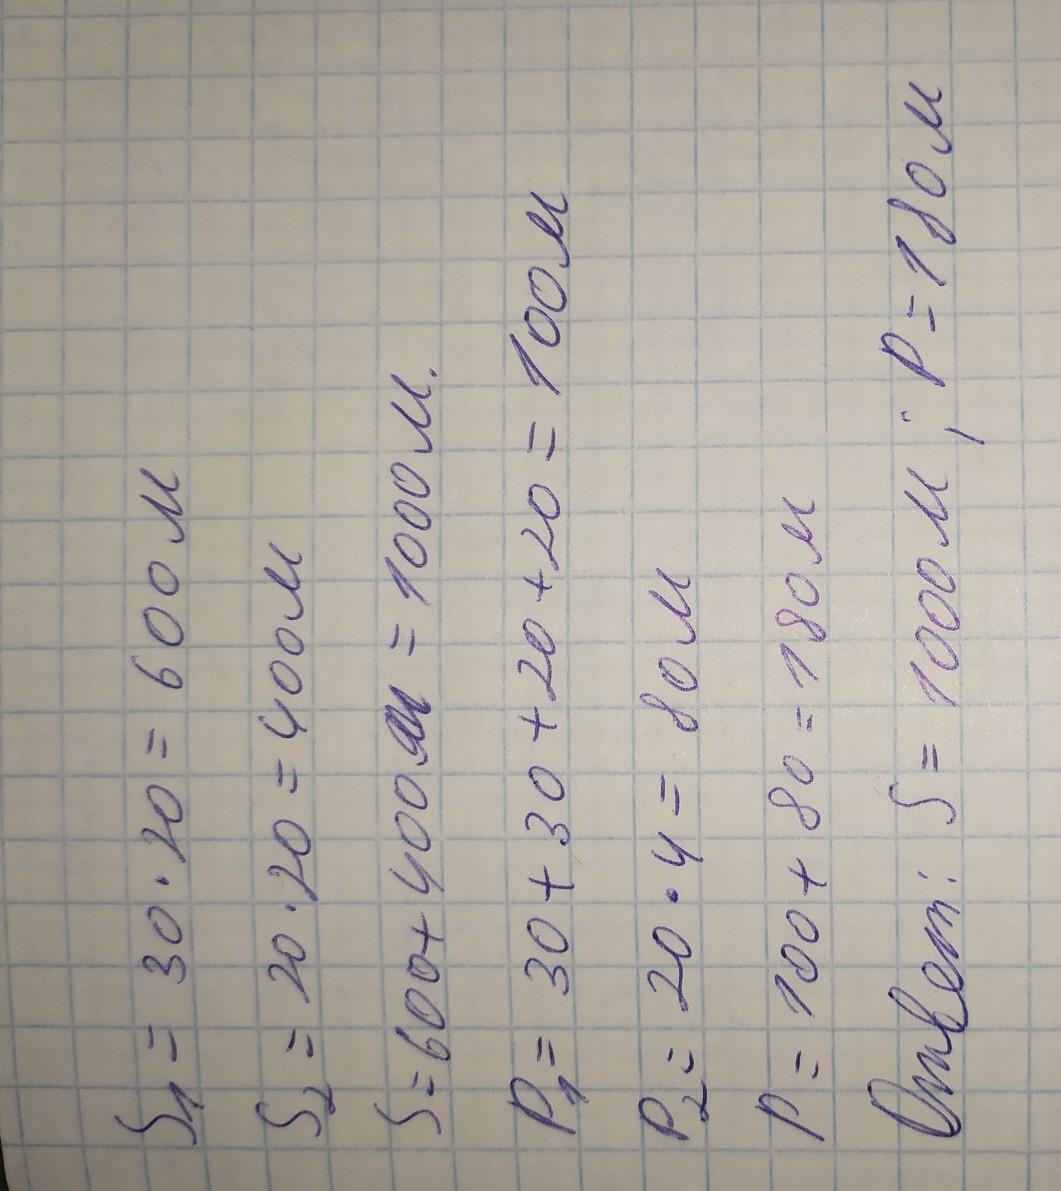 S₁ = 30 · 20 = 600 м
S₂ = 20 · 20 = 400 м
S = 600 + 400 = 1000 м.
P₁ = 30 + 30 + 20 + 20 = 100 м
P₂ = 20 · 4 = 80 м
P = 100 + 80 = 180 м
Ответ: S = 1000 м ; P = 180 м